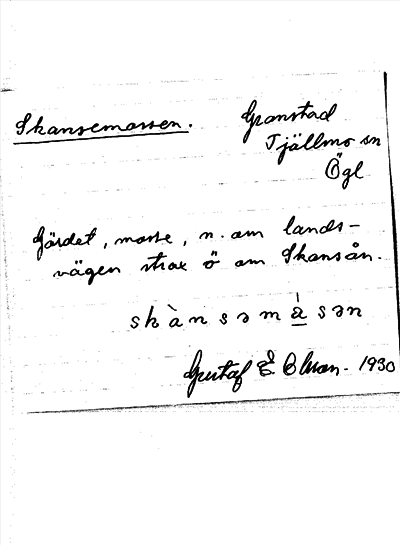 Skansemossen.
Granstad
Tjällmo sn
Ögl
Gärdet, mosse, n. om lands-
vägen strax ö om Skansån.
skànsəmå̀sən
Gustaf E. Olson. 1930